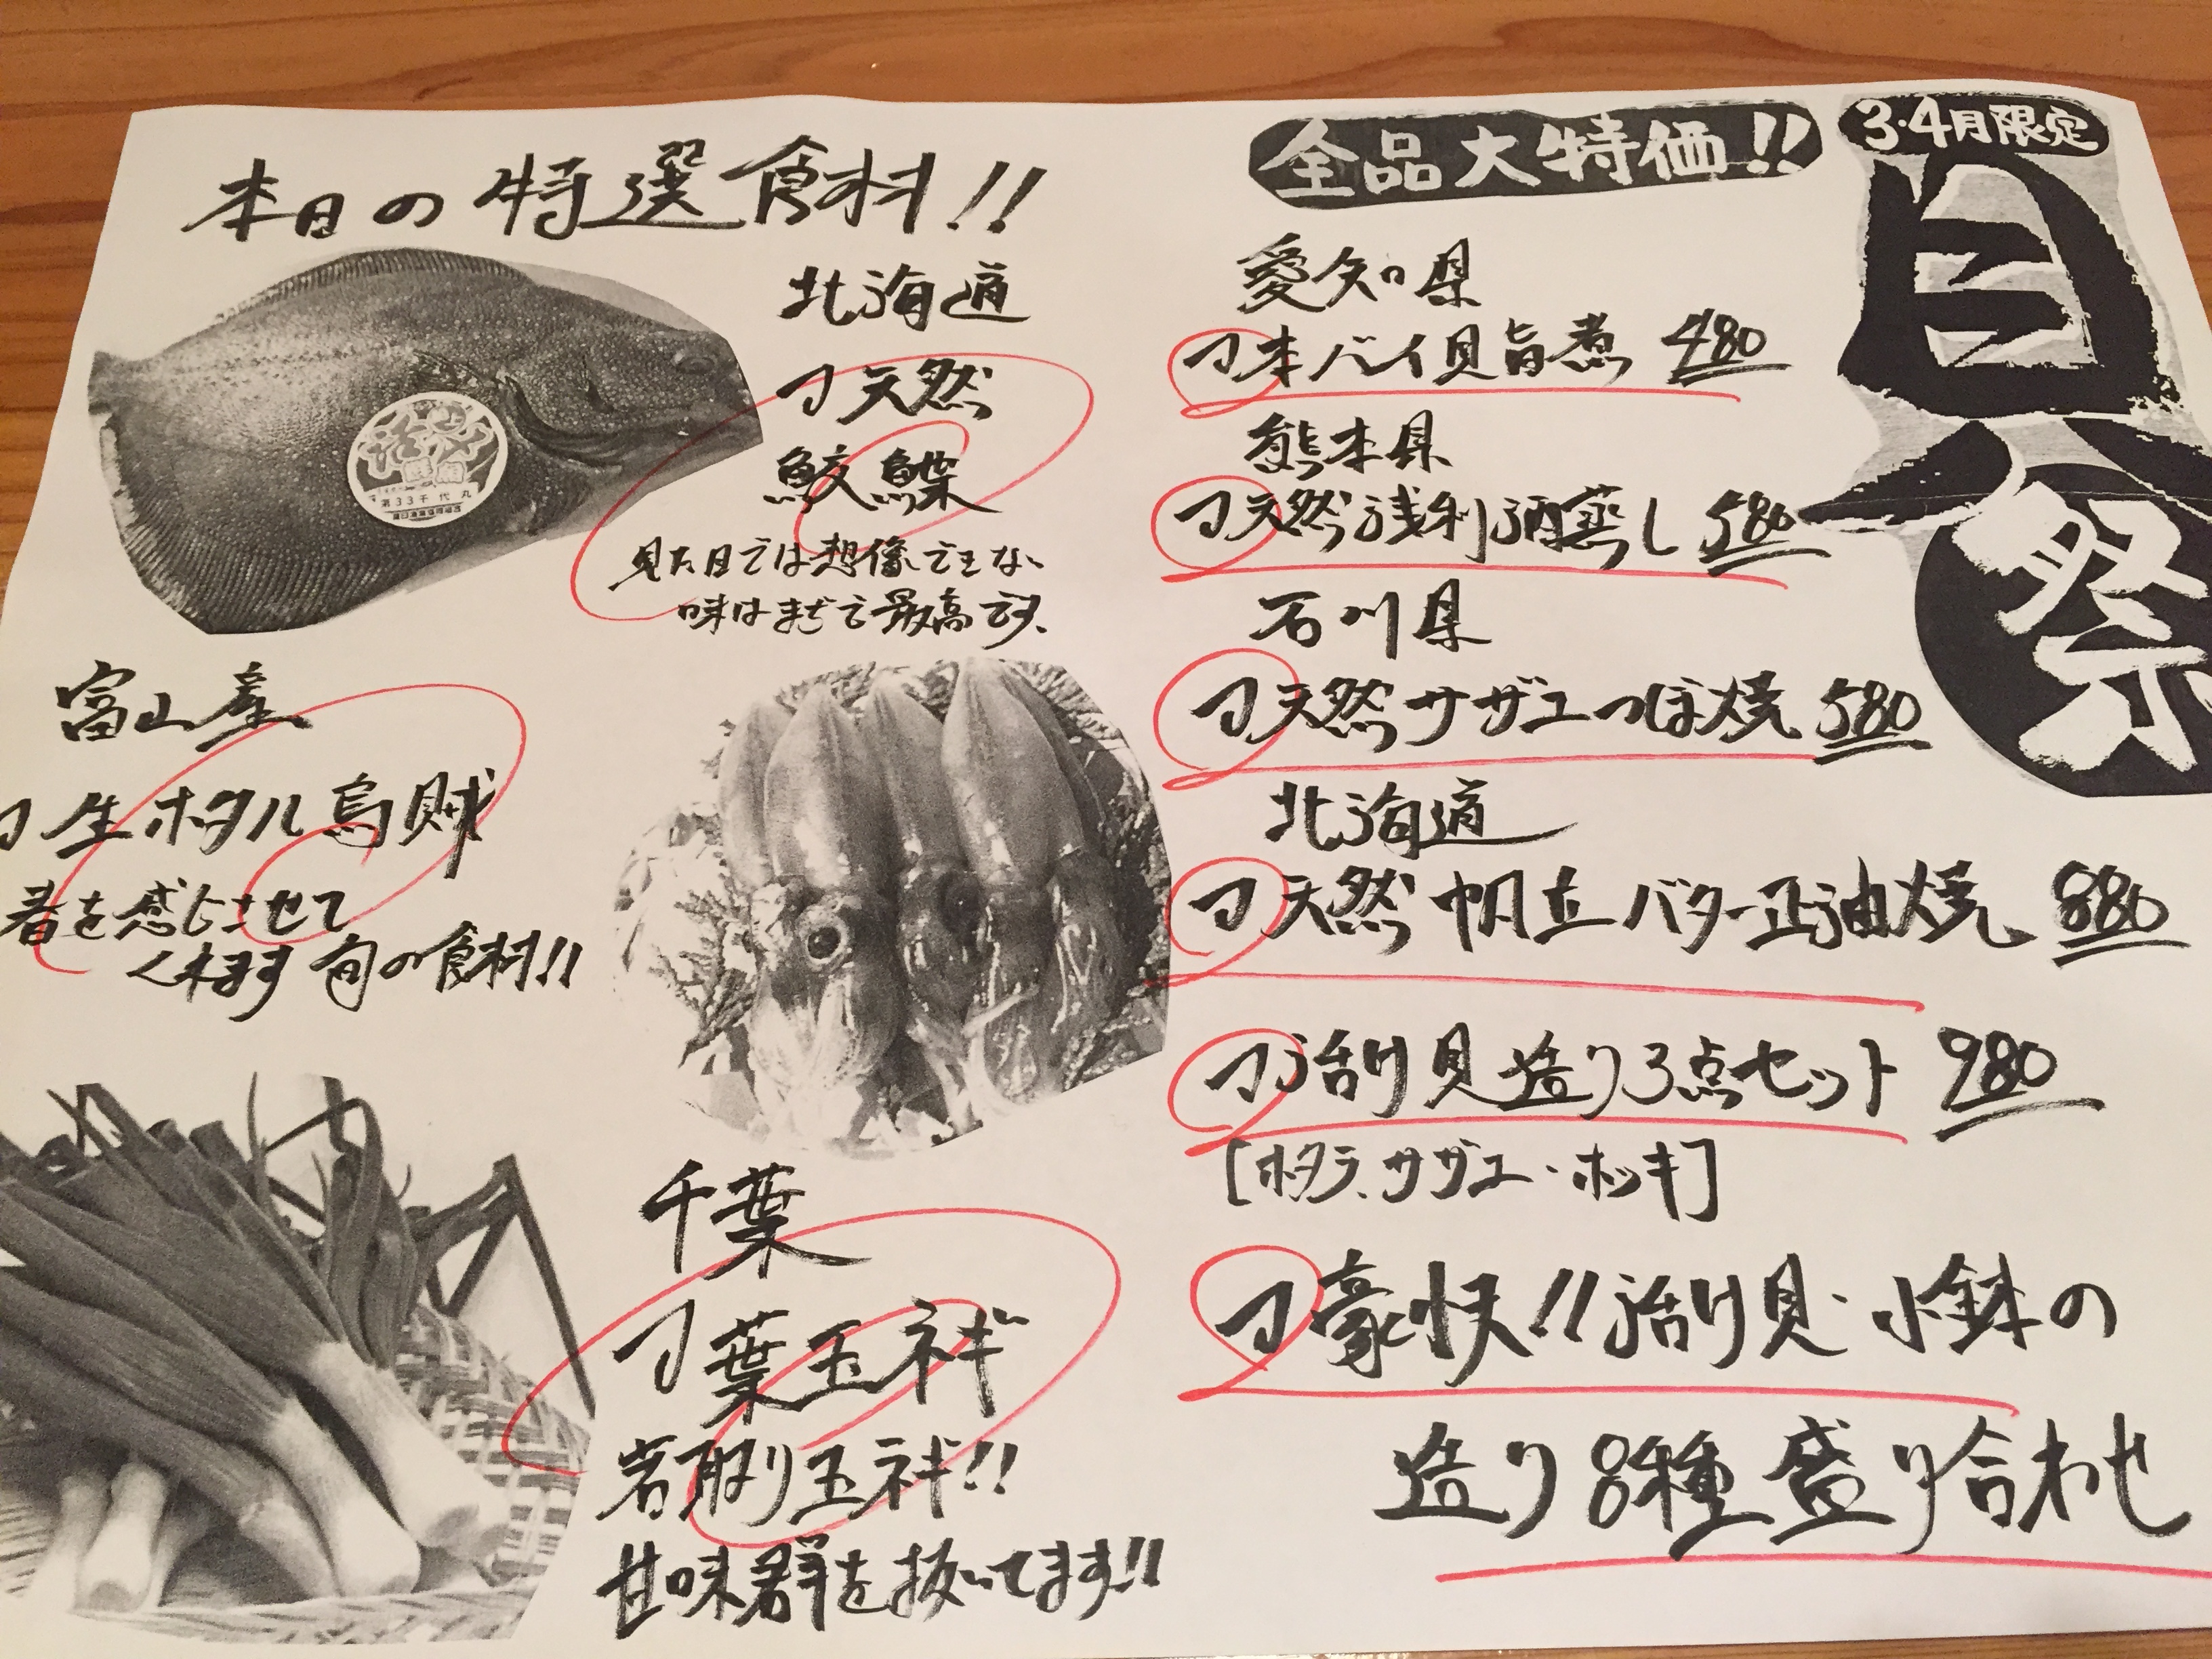 本日の特選食材!!
北海道
天然
鮫鰈
見た目では想像できない
味はまぢで最高です、
活〆
鮮鯛
第33千代丸
富山産
生ホタル烏賊
春を感じさせて
くれます旬の食材!!
千葉
葉玉ネギ
若取り玉ネギ!!
甘味群を抜いてます!!
3・4月限定
貝祭
全品大特価!!
愛知県
本バイ貝旨煮 480
熊本県
天然浅利酒蒸し 580
石川県
天然サザエつぼ焼 580
北海道
天然帆立バター正油焼 880
活り貝造り3点セット 980
[ホタテ、サザエ・ホッキ]
豪快!!活り貝・小鉢の
造り8種盛り合わせ